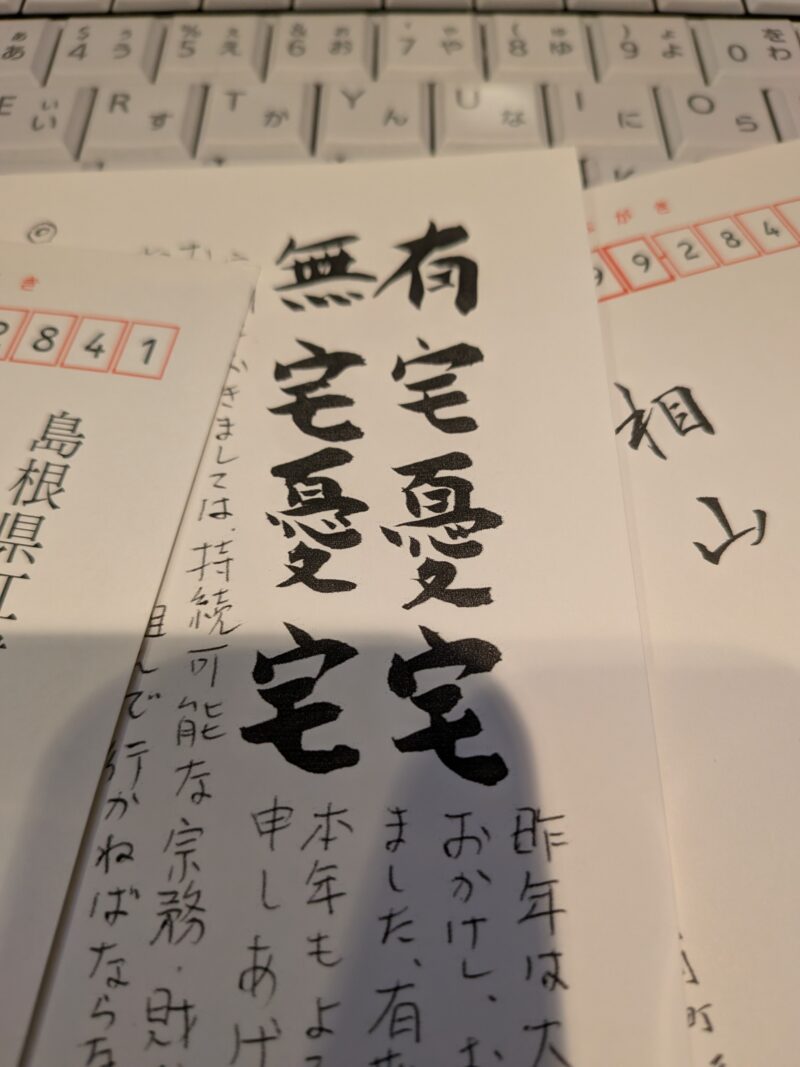 あ 4 う 5 え 6 お 7 や 8 ゆ 9 よ 0 を わ
E い R す T か Y ん U な I に O ら
K
がき
9 2 8 4
相
山
有宅憂宅
無宅憂宅
昨年は大
おかけし、お
ました、有
本年もよろ
申しあげ
きましては、持続可能な宗務・財
んで行かねばならな
き
8 4 1
島根県江